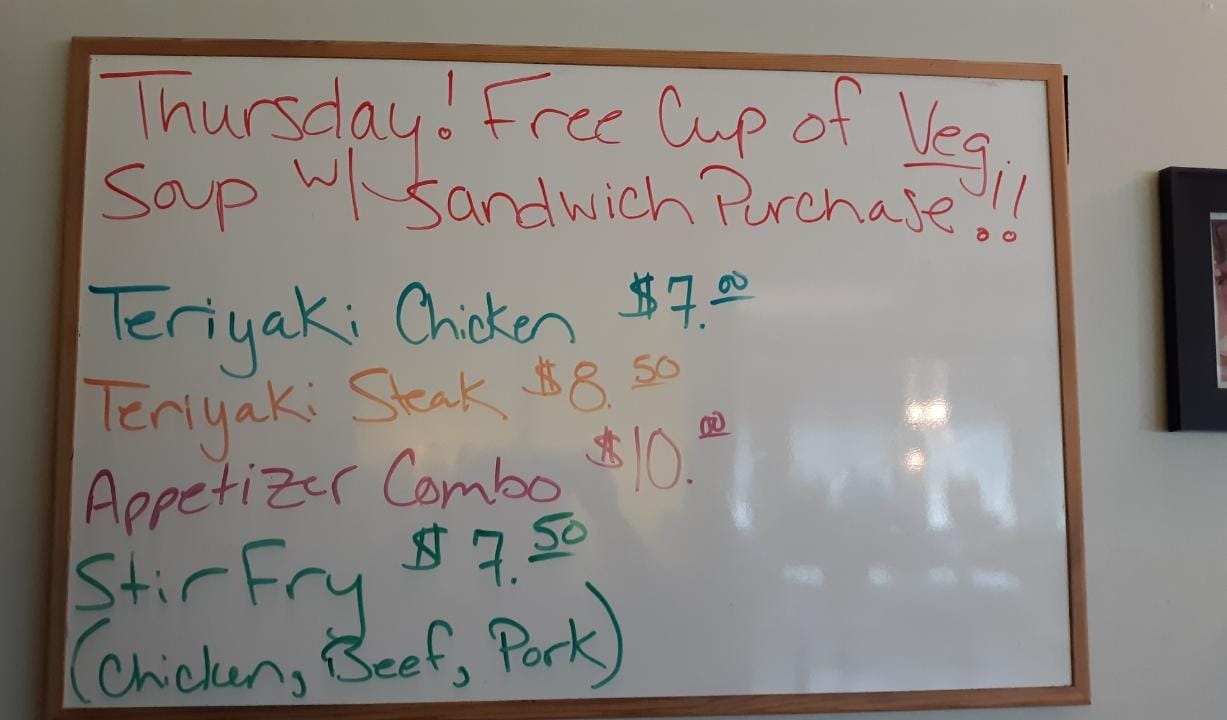 Thursday! Free Cup of Veg.
Soup w/ Sandwich Purchase!!
Teriyaki Chicken $7.00
Teriyaki Steak $8.50
Appetizer Combo $10.00
Stir Fry $7.50
(Chicken, Beef, Pork)